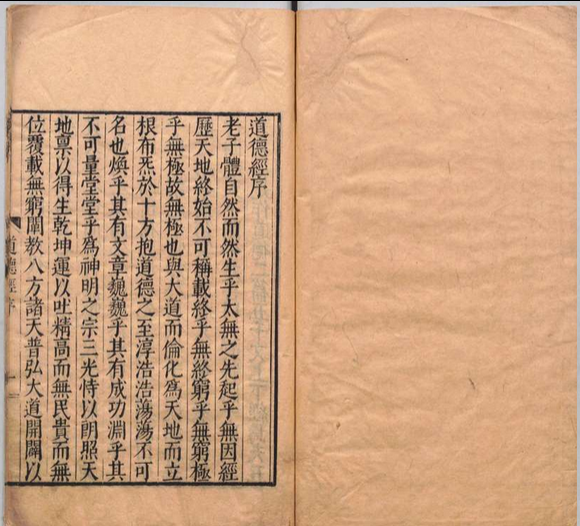 道德經序
老子體自然而然生乎太無之先起乎無因經
歷天地終始不可稱載終乎無終窮乎無窮極
乎無極故無極也與大道而倫化爲天地而立
根布炁於十方抱道德之至淳浩浩蕩蕩不可
名也煥乎其有文章巍巍乎其有成功淵乎其
不可量堂堂乎爲神明之宗三光恃以朗照天
地禀以得生乾坤運以吐精高而無民貴而無
位覆載無窮闡教八方諸天普弘大道開闢以
道德經序